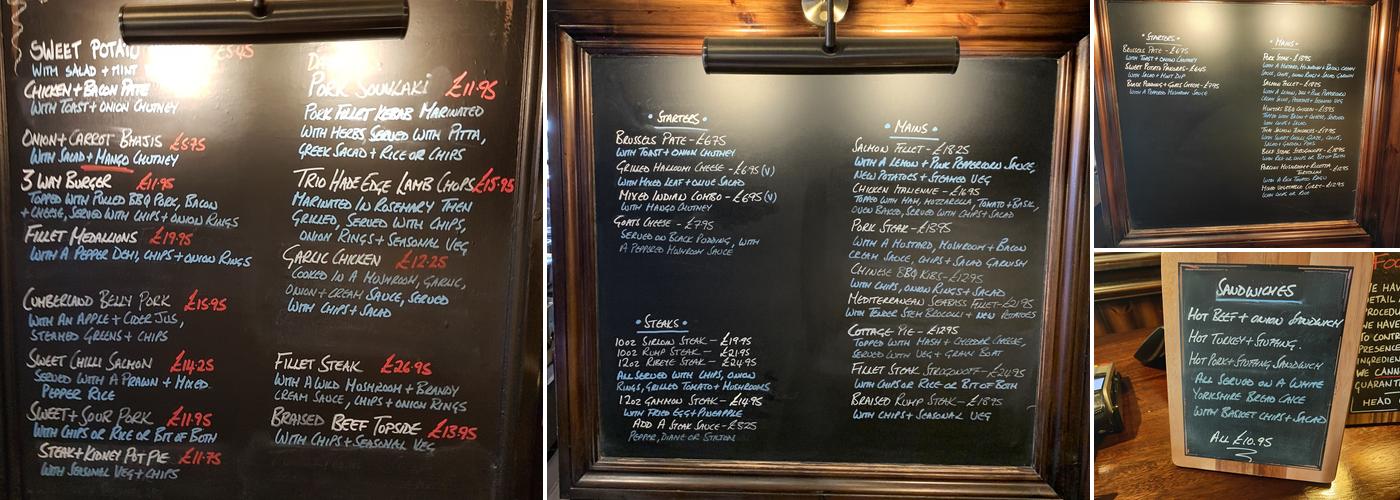 SWEET POTATO £5.45
WITH SALAD + MINT
CHICKEN + BACON PATE
WITH TOAST + ONION CHUTNEY
ONION + CARROT BHAJIS £5.75
WITH SALAD + MANGO CHUTNEY
3 WAY BURGER £11.95
TOPPED WITH PULLED BBQ PORK, BACON
+ CHEESE, SERVED WITH CHIPS + ONION RINGS
FILLET MEDALLIONS £19.95
WITH A PEPPER DEMI, CHIPS + ONION RINGS
CUMBERLAND BELLY PORK £15.95
WITH AN APPLE + CIDER JUS,
STEAMED GREENS + CHIPS
SWEET CHILLI SALMON £14.25
SERVED WITH A PRAWN + MIXED
PEPPER RICE
SWEET + SOUR PORK £11.95
WITH CHIPS OR RICE OR BIT OF BOTH
STEAK + KIDNEY POT PIE £11.75
WITH SEASONAL VEG + CHIPS
PORK SOUVLAKI £11.95
PORK FILLET KEBAB MARINATED
WITH HERBS SERVED WITH PITTA,
GREEK SALAD + RICE OR CHIPS
TRIO HADE EDGE LAMB CHOPS £15.95
MARINATED IN ROSEMARY THEN
GRILLED, SERVED WITH CHIPS,
ONION RINGS + SEASONAL VEG
GARLIC CHICKEN £12.25
COOKED IN A MUSHROOM, GARLIC,
ONION + CREAM SAUCE, SERVED
WITH CHIPS + SALAD
FILLET STEAK £26.95
WITH A WILD MUSHROOM + BRANDY
CREAM SAUCE, CHIPS + ONION RINGS
BRAISED BEEF TOPSIDE £13.95
WITH CHIPS + SEASONAL VEG
• STARTERS •
BRUSSELS PATE - £6.75
WITH TOAST + ONION CHUTNEY
GRILLED HALLOUMI CHEESE - £6.95 (V)
WITH MIXED LEAF + OLIVE SALAD
MIXED INDIAN COMBO - £6.95 (V)
WITH MANGO CHUTNEY
GOATS CHEESE - £7.95
SERVED ON BLACK PUDDING, WITH
A PEPPERED MUSHROOM SAUCE
• STEAKS •
10oz SIRLOIN STEAK - £19.95
10oz RUMP STEAK - £21.95
12oz RIBEYE STEAK - £24.95
ALL SERVED WITH CHIPS, ONION
RINGS, GRILLED TOMATO + MUSHROOMS
12oz GAMMON STEAK - £14.95
WITH FRIED EGG + PINEAPPLE
ADD A STEAK SAUCE - £3.25
PEPPER, DIANE OR STILTON
• MAINS •
SALMON FILLET - £18.25
WITH A LEMON + PINK PEPPERCORN SAUCE,
NEW POTATOES + STEAMED VEG
CHICKEN ITALIENNE - £16.95
TOPPED WITH HAM, MOZZARELLA, TOMATO + BASIL,
OVEN BAKED, SERVED WITH CHIPS + SALAD
PORK STEAK - £18.95
WITH A MUSTARD, MUSHROOM + BACON
CREAM SAUCE, CHIPS + SALAD GARNISH
CHINESE BBQ RIBS - £17.95
WITH CHIPS, ONION RINGS + SALAD
MEDITERRANEAN SEABASS FILLET - £21.95
WITH TENDER STEM BROCOLLI + NEW POTATOES
COTTAGE PIE - £12.95
TOPPED WITH MASH + CHEDDAR CHEESE,
SERVED WITH VEG + GRAVY BOAT
FILLET STEAK STROGONOFF - £24.95
WITH CHIPS OR RICE OR BIT OF BOTH
BRAISED RUMP STEAK - £18.95
WITH CHIPS + SEASONAL VEG
• STARTERS •
BRUSSELS PATE - £6.75
WITH TOAST + ONION CHUTNEY
SWEET POTATO PAKORAS - £6.45
WITH SALAD + MINT DIP
BLACK PUDDING + GOATS CHEESE - £7.95
WITH A PEPPERED MUSHROOM SAUCE
• MAINS •
PORK STEAK - £18.95
WITH A MUSTARD, MUSHROOM + BACON CREAM
SAUCE, CHIPS, ONION RINGS + SALAD GARNISH
SALMON FILLET - £18.25
HUNTERS BBQ CHICKEN - £15.95
BEEF STEAK STROGONOFF
WITH RICE OR CHIPS OR BIT OF BOTH
SANDWICHES
HOT BEEF + ONION SANDWICH
HOT TURKEY + STUFFING.
HOT PORK + STUFFING SANDWICH
ALL SERVED ON A WHITE
YORKSHIRE BREAD CAKE
WITH BASKET CHIPS + SALAD
ALL £10.95